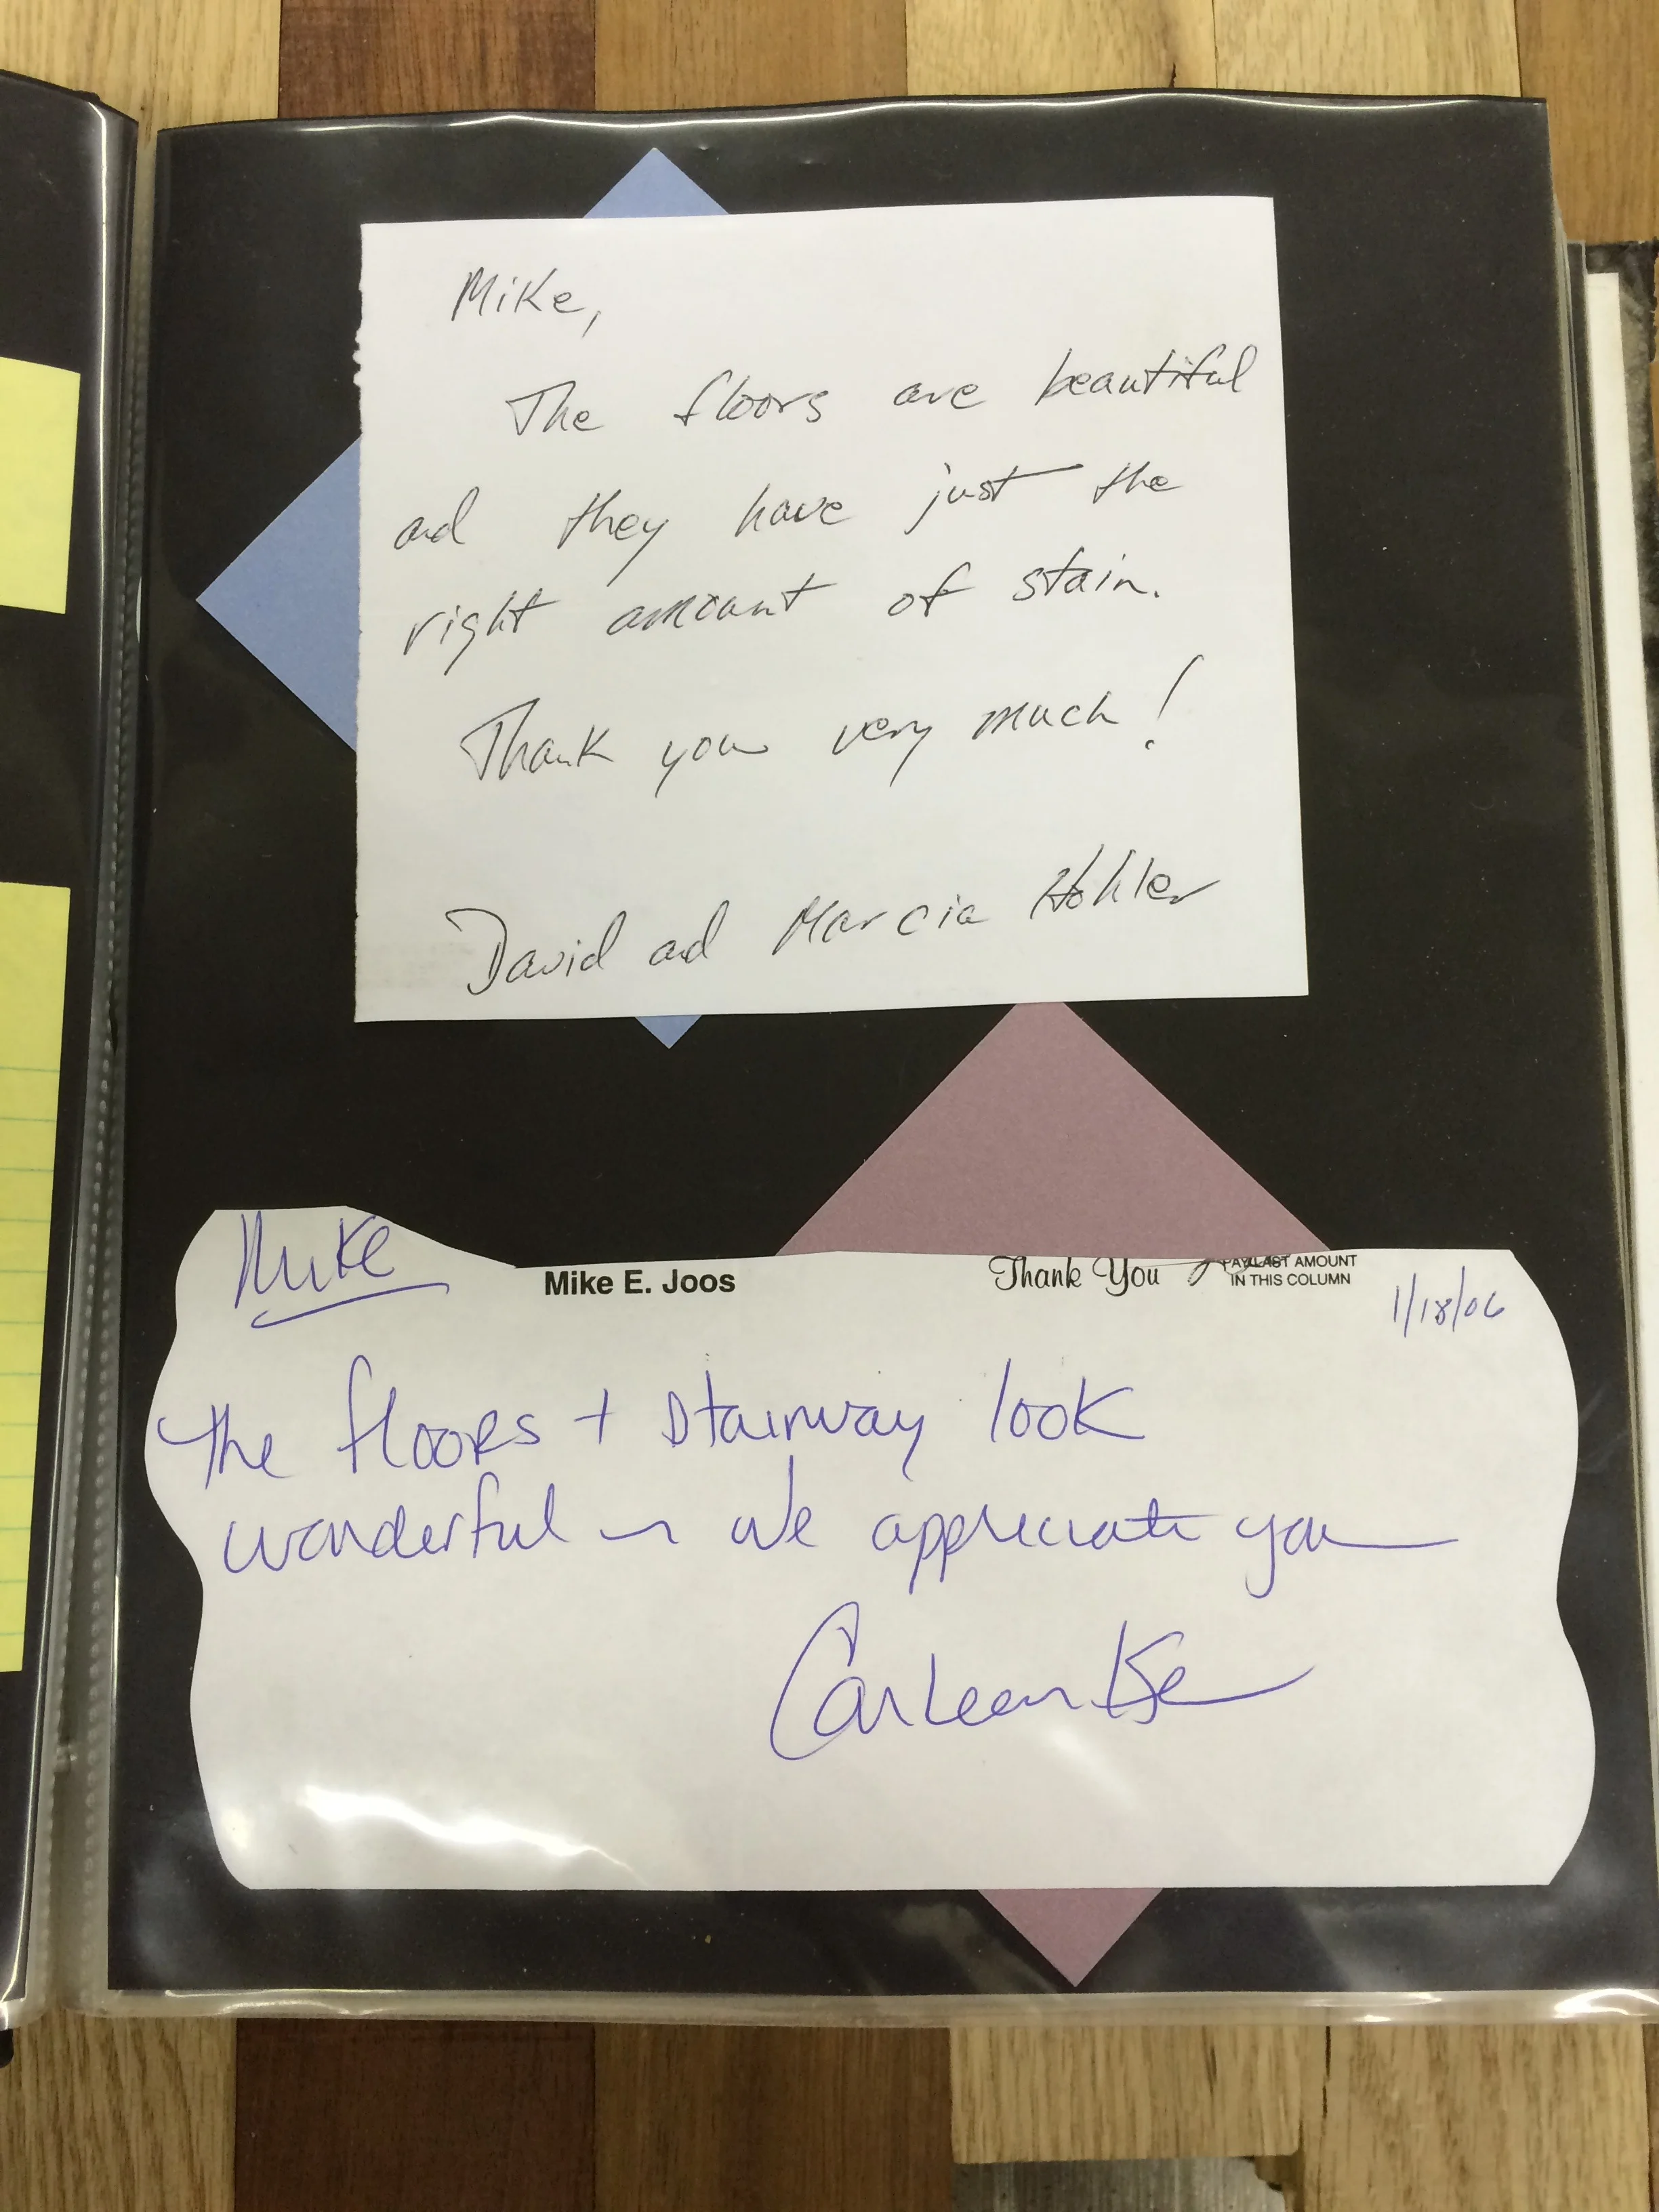 Mike,
The floors are beautiful
and they have just the
right amount of stain.
Thank you very much!
David and Marcia Hohler
Mike
Mike E. Joos
Thank You
PAY LAST AMOUNT
IN THIS COLUMN
1/18/06
The floors + stairway look
wonderful ~ We appreciate you
Carleen